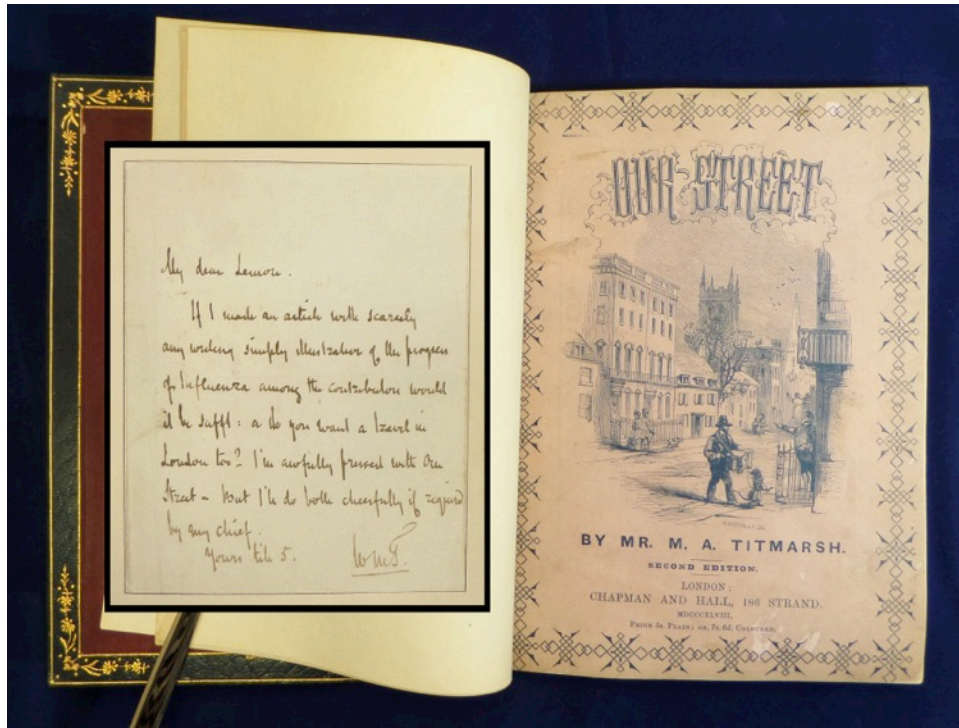 My dear Lemon.
If I made an article with scarcely
any writing simply illustrative of the progress
of Influenza among the contributors would
it be sufft : or do you want a Travel in
London too? I'm awfully pressed with Our
Street - but I'll do both cheerfully if required
by my chief.
Yours till 5.
WMT.
OUR STREET
BY MR. M. A. TITMARSH.
SECOND EDITION.
LONDON:
CHAPMAN AND HALL, 186 STRAND.
MDCCCXLVIII.
PRICE 5s. PLAIN; OR, 7s. 6d. COLOURED.